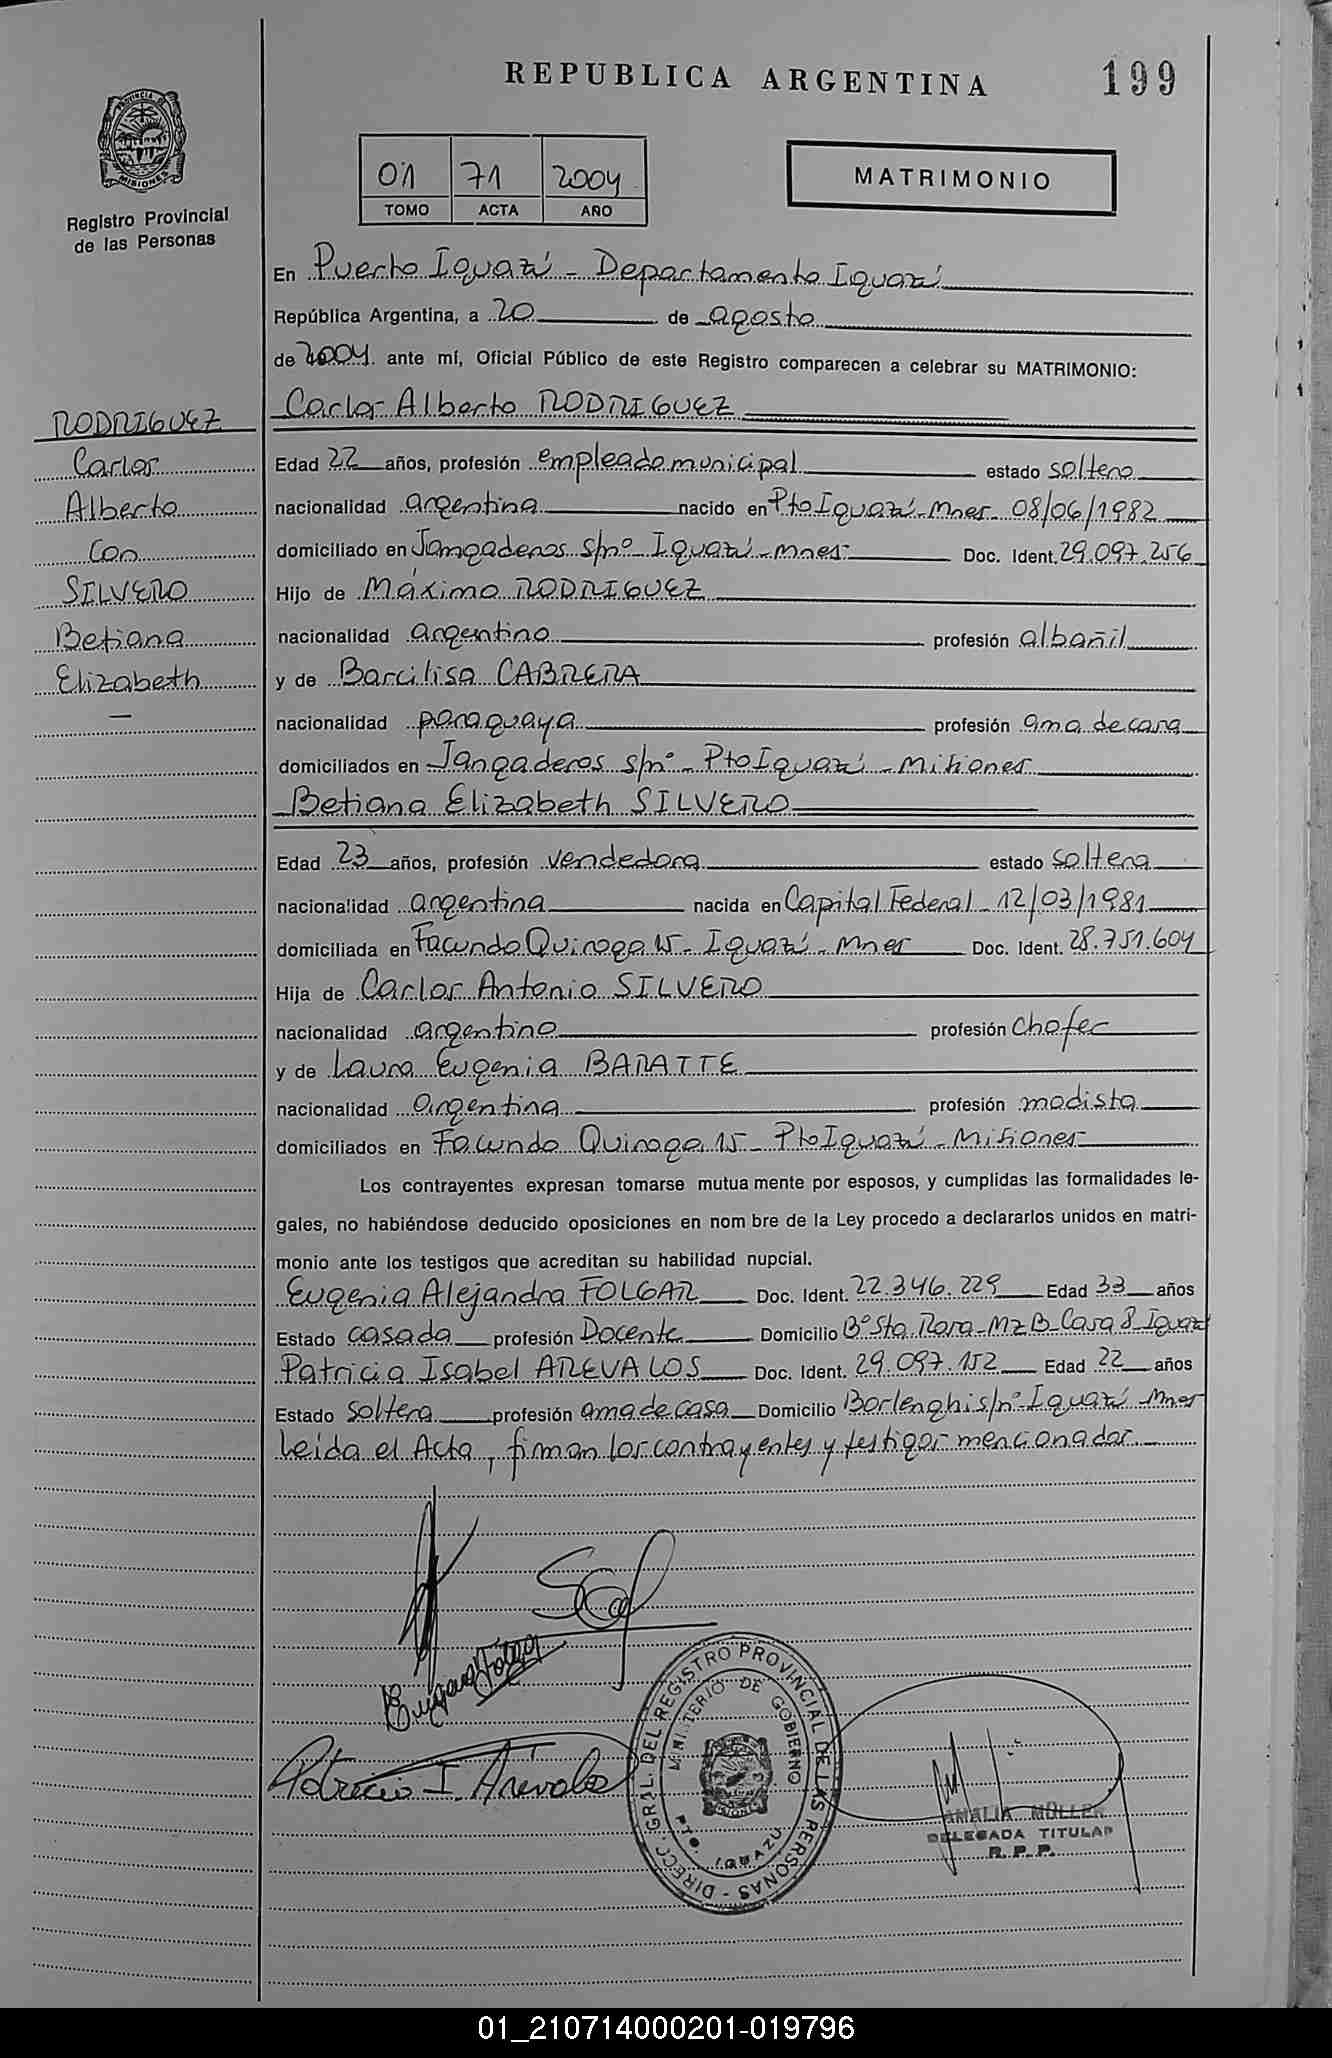 REPUBLICA ARGENTINA
199
PROVINCIA DE
MISIONES
Registro Provincial
de las Personas
01 71 2004
TOMO ACTA AÑO
MATRIMONIO
En Puerto Iguazú - Departamento Iguazú
República Argentina, a 20 de agosto
de 2004 ante mí, Oficial Público de este Registro comparecen a celebrar su MATRIMONIO:
RODRIGUEZ
Carlos
Alberto
Con
SILVERO
Betiana
Elizabeth
—
Carlos Alberto RODRIGUEZ
Edad 22 años, profesión empleado municipal estado soltero
nacionalidad argentina nacido en Pto Iguazú - Mnes - 08/06/1982
domiciliado en Jangaderos s/nº Iguazú - Mnes - Doc. Ident. 29.097.256
Hijo de Máximo RODRIGUEZ
nacionalidad argentino profesión albañil
y de Barcilisa CABRERA
nacionalidad paraguaya profesión ama de casa
domiciliados en Jangaderos s/nº - Pto Iguazú - Misiones
Betiana Elizabeth SILVERO
Edad 23 años, profesión vendedora estado soltera
nacionalidad argentina nacida en Capital Federal - 12/03/1981
domiciliada en Facundo Quiroga 15 - Iguazú - Mnes Doc. Ident. 28.751.604
Hija de Carlos Antonio SILVERO
nacionalidad argentino profesión Chofer
y de Laura Eugenia BARATTE
nacionalidad argentina profesión modista
domiciliados en Facundo Quiroga 15 - Pto Iguazú - Misiones
Los contrayentes expresan tomarse mutua mente por esposos, y cumplidas las formalidades le-
gales, no habiéndose deducido oposiciones en nom bre de la Ley procedo a declararlos unidos en matri-
monio ante los testigos que acreditan su habilidad nupcial.
Eugenia Alejandra FOLGAR Doc. Ident. 22.346.229 Edad 33 años
Estado casada profesión Docente Domicilio Bº Sta. Rosa - Mz B Casa 8 Iguazú
Patricia Isabel AREVALOS Doc. Ident. 29.097.152 Edad 22 años
Estado soltera profesión ama de casa Domicilio Borlenghi s/nº Iguazú Mnes
Leída el Acta, firman los contrayentes y testigos mencionados
Eugenia Folgar
Patricia I. Arévalos
DIRECC. GRAL. DEL REGISTRO PROVINCIAL DE LAS PERSONAS -
MINISTERIO DE GOBIERNO
MISIONES
PTO. IGUAZU
AMALIA MÜLLER
DELEGADA TITULAR
R. P. P.
01_210714000201-019796